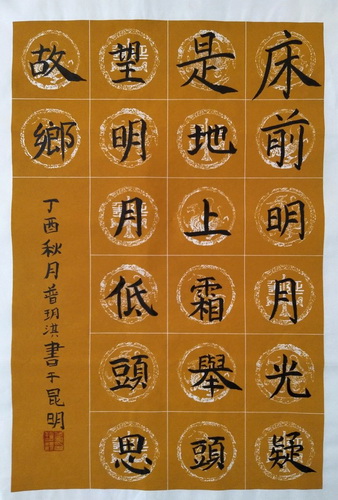 床前明月光疑
是地上霜舉頭
望明月低頭思
故鄉
丁酉秋月普玥淇書于昆明